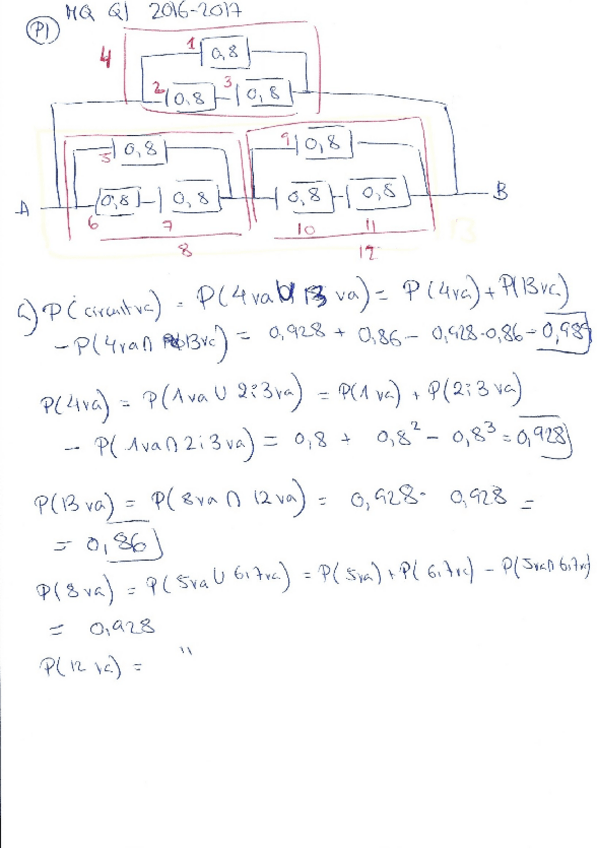 P1 MQ Q1 2016-2017
4 1 0,8
2 0,8 3 0,8
5 0,8 9 0,8
A 0,8 0,8 0,8 0,8 B
6 7 10 11
8 12 13
a) P(circuit va) = P(4va U 13 va) = P(4va) + P(13va)
- P(4va ∩ 13va) = 0,928 + 0,86 - 0,928·0,86 = 0,98
P(4va) = P(1va U 2i3va) = P(1va) + P(2i3va)
- P(1va ∩ 2i3va) = 0,8 + 0,8² - 0,8³ = 0,928
P(13va) = P(8va ∩ 12va) = 0,928 · 0,928 =
= 0,86
P(8va) = P(5va U 6i7va) = P(5va) + P(6i7va) - P(5va∩6i7va)
= 0,928
P(12va) = "